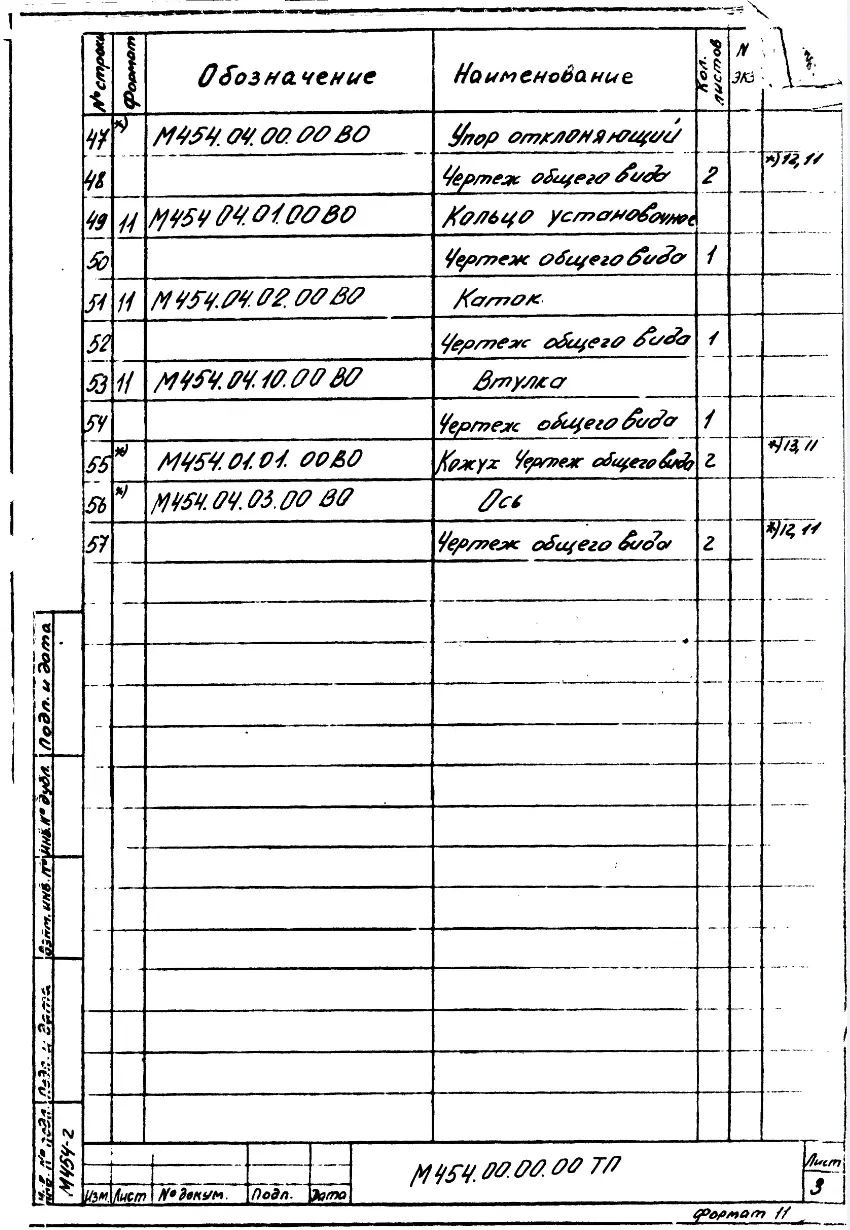 № строки Формат Обозначение Наименование Кол. листов N экз
47 *) М454.04.00.00 ВО Упор отклоняющий
48 Чертеж общего вида 2 *) 12, 11
49 11 М454 04.01.00 ВО Кольцо установочное
50 Чертеж общего вида 1
51 11 М454.04.02.00 ВО Каток.
52 Чертеж общего вида 1
53 11 М454.04.10.00 ВО Втулка
54 Чертеж общего вида 1
55 *) М454.01.01. 00 ВО Кожух Чертеж общего вида 2 *) 13, 11
56 *) М454.04.03.00 ВО Ось
57 Чертеж общего вида 2 *) 12, 11
Подп. и дата
Инв. № дубл.
Взам. инв. №
Подп. и дата
М454-2
М454.00.00.00 ТП
Лист
3
Изм. Лист № докум. Подп. Дата
Формат 11